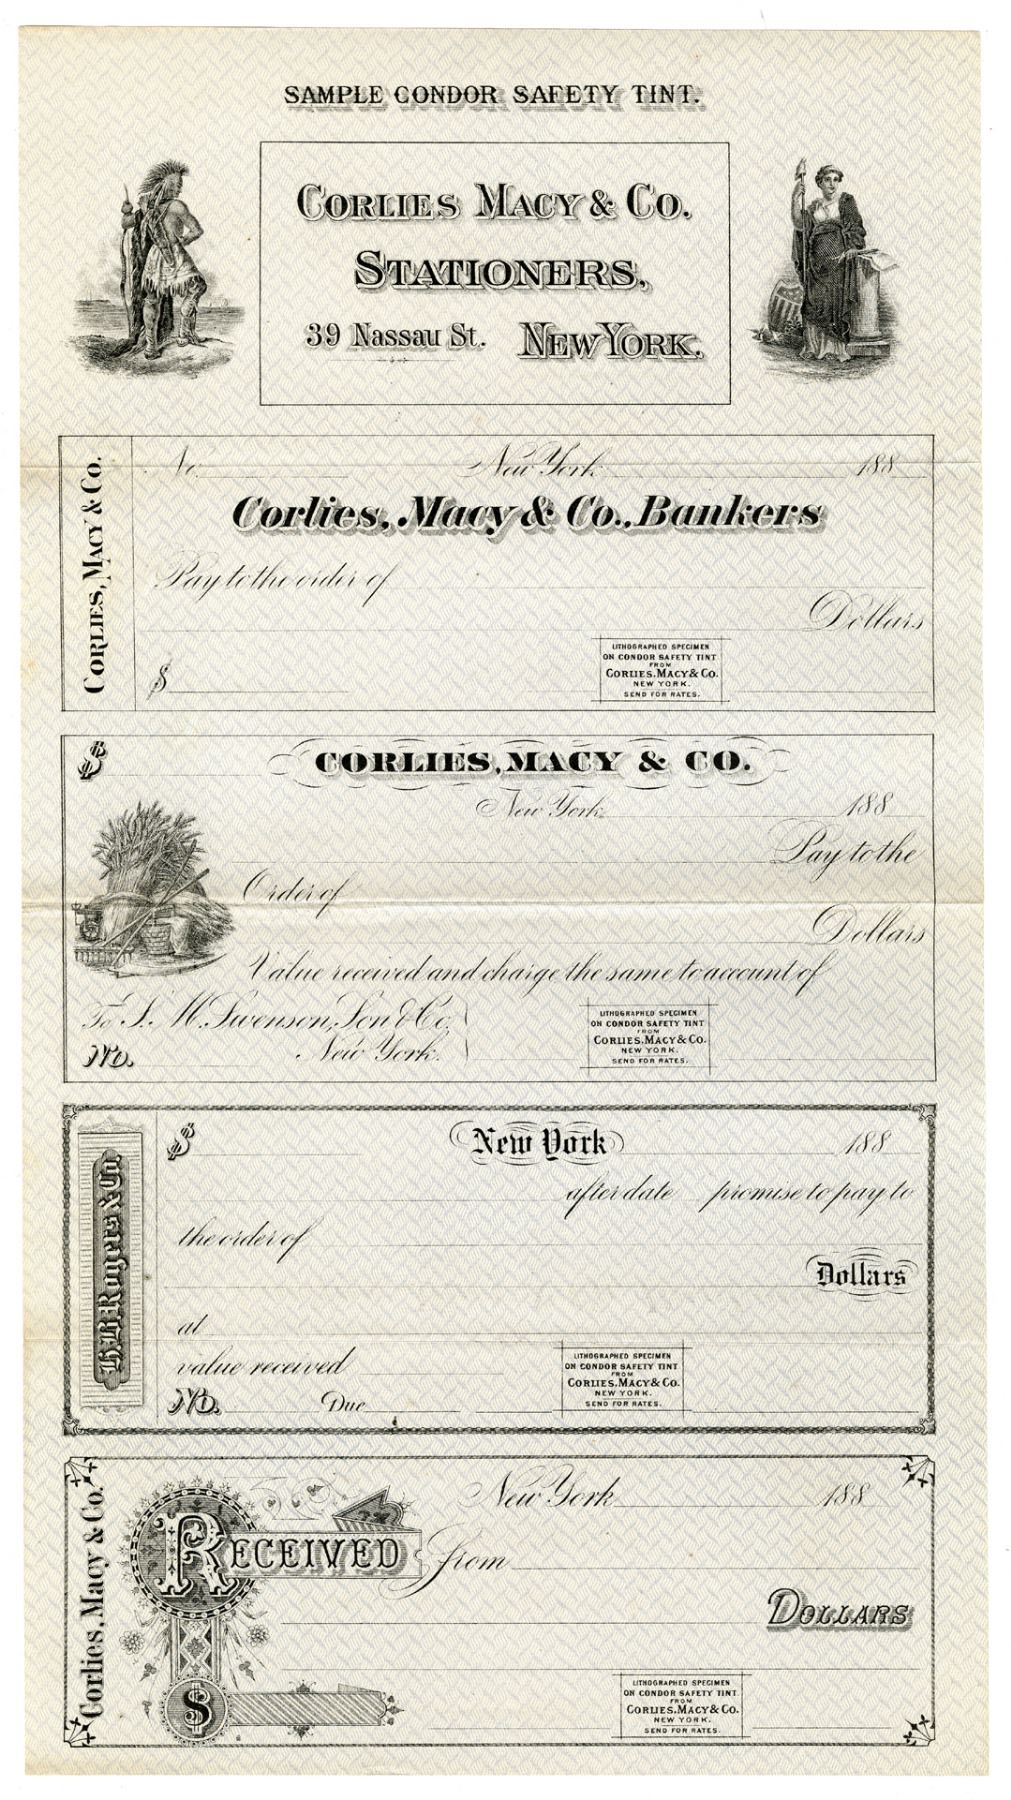 SAMPLE CONDOR SAFETY TINT.
CORLIES MACY & CO.
STATIONERS,
39 Nassau St. NEW YORK.
CORLIES, MACY & CO.
No. New York 188
Corlies, Macy & Co., Bankers
Pay to the order of
Dollars
$
LITHOGRAPHED SPECIMEN
ON CONDOR SAFETY TINT
FROM
CORLIES, MACY & CO.
NEW YORK.
SEND FOR RATES.
$ CORLIES, MACY & CO.
New York 188
Pay to the
Order of
Dollars
Value received and charge the same to account of
To S. M. Swenson, Son & Co.
New York.
No.
LITHOGRAPHED SPECIMEN
ON CONDOR SAFETY TINT
FROM
CORLIES, MACY & CO.
NEW YORK.
SEND FOR RATES.
H.B. Rogers & Co.
$ New York 188
after date promise to pay to
the order of
Dollars
at
value received
No. Due
LITHOGRAPHED SPECIMEN
ON CONDOR SAFETY TINT
FROM
CORLIES, MACY & CO.
NEW YORK.
SEND FOR RATES.
Corlies, Macy & Co.
New York 188
RECEIVED from
DOLLARS
$
LITHOGRAPHED SPECIMEN
ON CONDOR SAFETY TINT
FROM
CORLIES, MACY & CO.
NEW YORK.
SEND FOR RATES